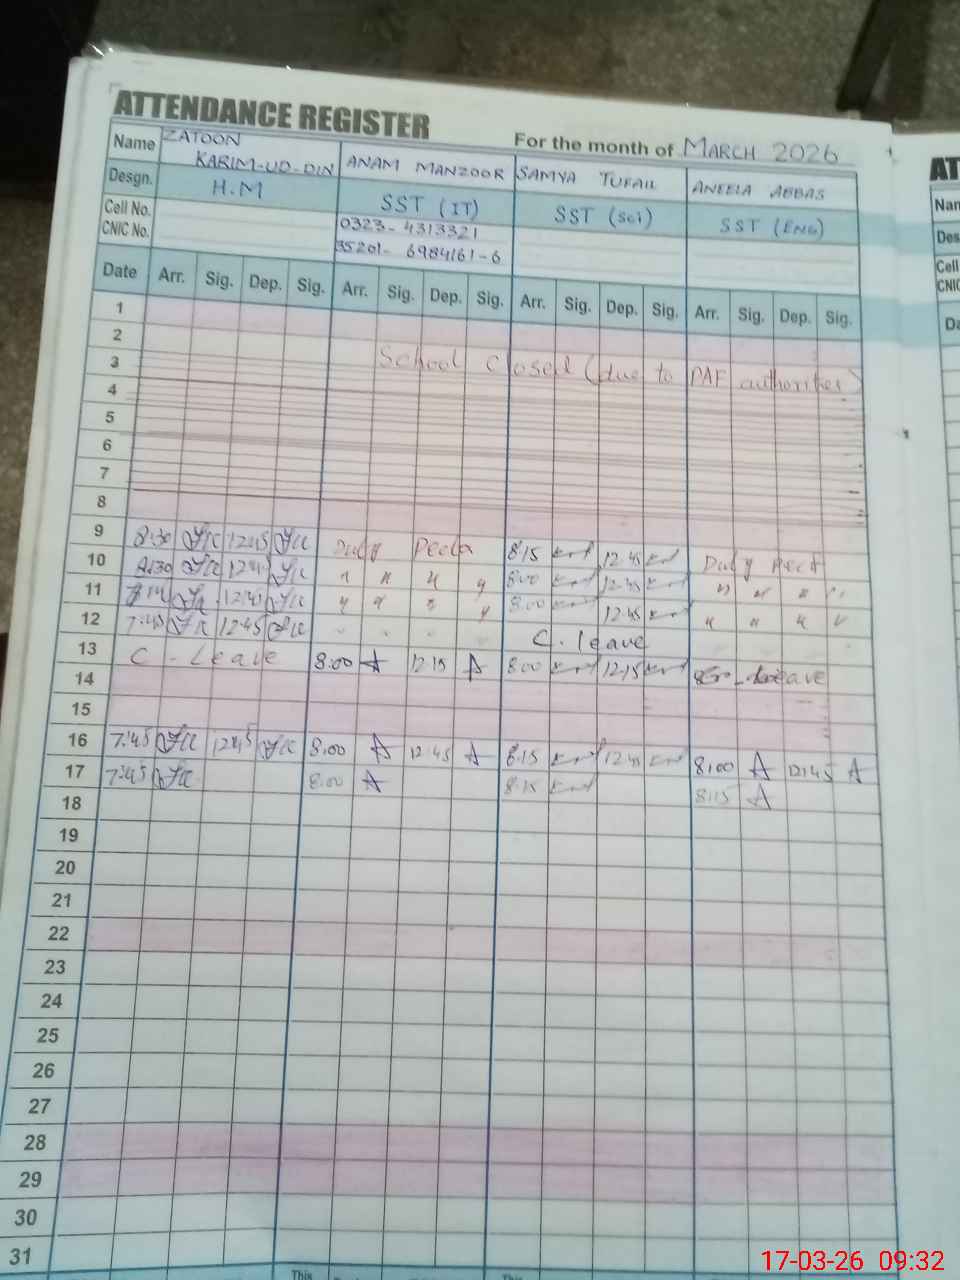 ATTENDANCE REGISTER
For the month of MARCH 2026
Name ZATOON KARIM-UD-DIN ANAM MANZOOR SAMYA TUFAIL ANEELA ABBAS
Desgn. H.M SST (IT) SST (Sci) SST (ENG)
Cell No. 0323-4313321
CNIC No. 35201-6984161-6
Date Arr. Sig. Dep. Sig. Arr. Sig. Dep. Sig. Arr. Sig. Dep. Sig. Arr. Sig. Dep. Sig.
1
2
3 School Closed (due to PAF authorities)
4
5
6
7
8
9 8:30 12:45 Duty 8:15 12:45 Duty
10 8:30 12:45 8:00 12:45
11 12:45 8:00 12:45
12 7:45 12:45 C. leave
13 C. Leave 8:00 12:15 8:00 12:15 Leave
14
15
16 7:45 12:45 8:00 12:45 8:15 12:45 8:00 12:45
17 7:45 8:00 8:15 8:15
18
19
20
21
22
23
24
25
26
27
28
29
30
31
This
This
AT
Nam
Des
Cell
CNIC
Da
17-03-26 09:32